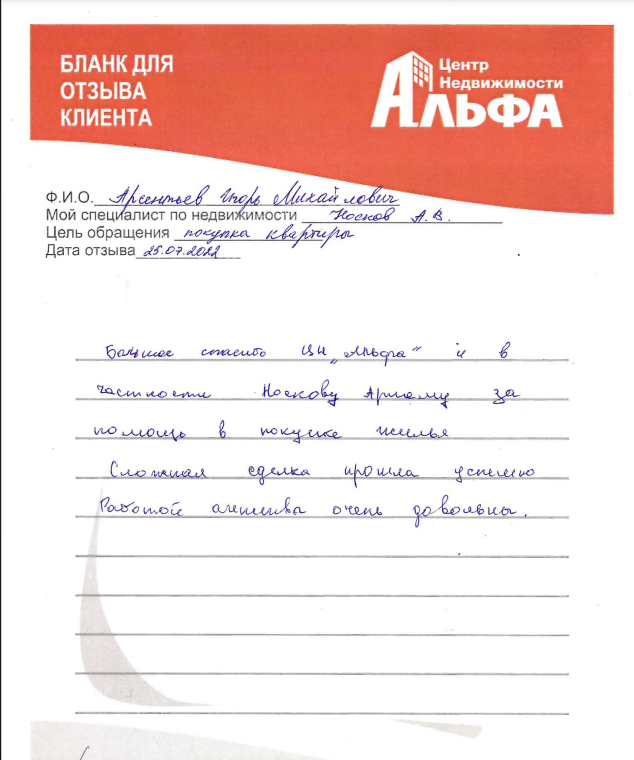 БЛАНК ДЛЯ
ОТЗЫВА
КЛИЕНТА
Центр
Недвижимости
АЛЬФА
Ф.И.О. Арсентьев Игорь Михайлович
Мой специалист по недвижимости Носков А.В.
Цель обращения покупка квартиры
Дата отзыва 25.07.2022
Большое спасибо ЦН „Альфа" и в
частности Носкову Артему за
помощь в покупке жилья
Сложная сделка прошла успешно
Работой агентства очень довольны.